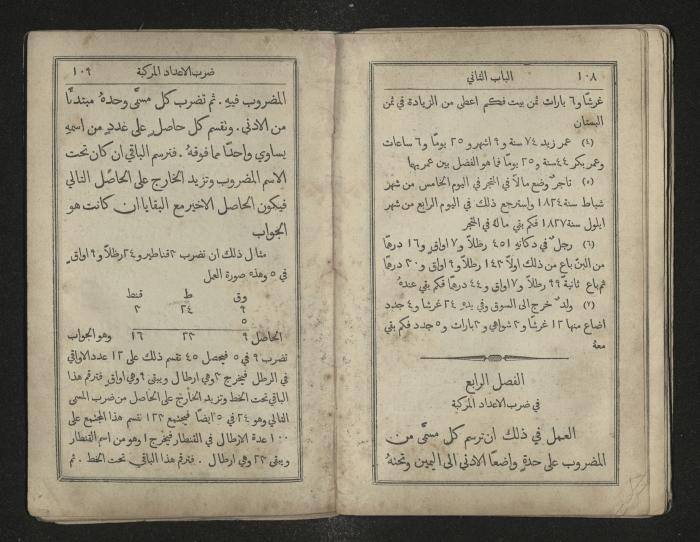 ١٠٨ الباب الثاني
غرشًا و٦ بارات ثمن بيت فكم اعطي من الزيادة في ثمن
البستان
(٤) عمر زيد ٧٤ سنة و٩ اشهر و٢٥ يومًا و٦ ساعات
وعمر بكر ٤٤ سنة و٢٥ يومًا فما هو الفضل بين عمريهما
(٥) تاجرٌ وضع مالاً في المتجر في اليوم الخامس من شهر
شباط سنة ١٨٢٤ واسترجع ذلك في اليوم الرابع من شهر
ايلول سنة ١٨٢٧ فكم بقي مالهُ في المتجر
(٦) رجلٌ في دكانهِ ٤٥١ رطلاً و٧ اواقٍ و١٦ درهمًا
من البن باع من ذلك اولاً ١٤٢ رطلاً و٩ اواقٍ و٣٠ درهمًا
ثم باع ثانيةً ٩٩ رطلاً و٧ اواقٍ و٤٤ درهمًا فكم بقي عندهُ
(٧) ولدٌ خرج الى السوق وفي يدهِ ٢٤ غرشًا و٤ جدد
اضاع منها ١٢ غرشًا و٢ شواهي و٢ بارات و٥ جدد فكم بقي
معهُ
الفصل الرابع
في ضرب الاعداد المركبة
العمل في ذلك ان ترسم كل مسمًّى من
المضروب على حدةٍ واضعًا الادنى الى اليمين وتحتهُ
ضرب الاعداد المركبة ١٠٩
المضروب فيهِ. ثم تضرب كل مسمًّى وحدهُ مبتدئًا
من الادنى. ونقسم كل حاصلٍ على عددٍ من اسمهِ
يساوي واحدًا مما فوقهُ. فترسم الباقي ان كان تحت
الاسم المضروب وتزيد الخارج على الحاصل التالي
فيكون الحاصل الاخير مع البقايا ان كانت هو
الجواب
مثال ذلك ان تضرب ٣ قناطير و٢٤ رطلاً و٩ اواقٍ
في ٥ وهذه صورة العمل
وق ط قنط
٩ ٢٤ ٣
٥
الحاصل ٩ ٢٣ ١٦ وهو الجواب
تضرب ٩ في ٥ فيحصل ٤٥ تقسم ذلك على ١٢ عدد الاواقي
في الرطل فيخرج ٣ وهي ارطال ويبقى ٩ وهي اواقٍ فترقم هذا
الباقي تحت الخط وتزيد الخارج على الحاصل من ضرب المسمى
التالي وهو ٢٤ في ٥ ايضًا فيجتمع ١٢٣ تقسم هذا المجتمع على
١٠٠ عدة الارطال في القنطار فيخرج ١ وهو من اسم القنطار
ويبقى ٢٣ وهي ارطال. فترقم هذا الباقي تحت الخط. ثم